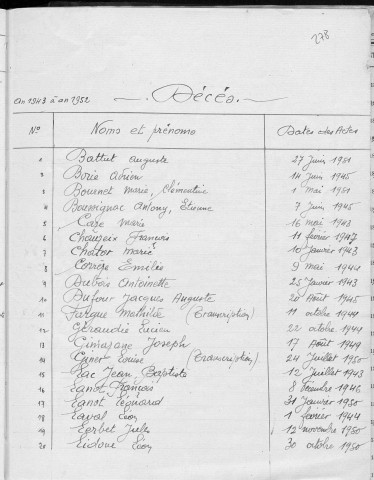 278
an 1943 à an 1952 Décés.
N° Noms et prénoms Dates des Actes
1 Battut Auguste 27 Juin 1951
2 Borie Adrien 14 Juin 1945
3 Bouenet Marie, Clémentine 1 mai 1951
4 Boussignac Antony, Etienne 7 Juin 1945
5 Caze Marie 16 mai 1943
6 Chauzeix François 11 février 1947
7 Chastor Marie 10 Janvier 1943
8 Corrèze Emilie 9 mai 1944
9 Dubois Antoinette 25 Janvier 1943
10 Dufour Jacques Auguste 20 Août 1945
11 Mathilde (Transcription) 11 octobre 1944
12 Géraudie Lucien 22 octobre 1944
13 Joseph 17 Août 1949
14 Louise (Transcription) 24 Juillet 1950
15 Lac Jean, Baptiste 12 Juillet 1943
16 Lanot François 8 1946
17 Lanot Léonard 31 Janvier 1950
18 Laval Léon 1 février 1944
19 Jules 12 novembre 1950
20 Lidove Léon 30 octobre 1950